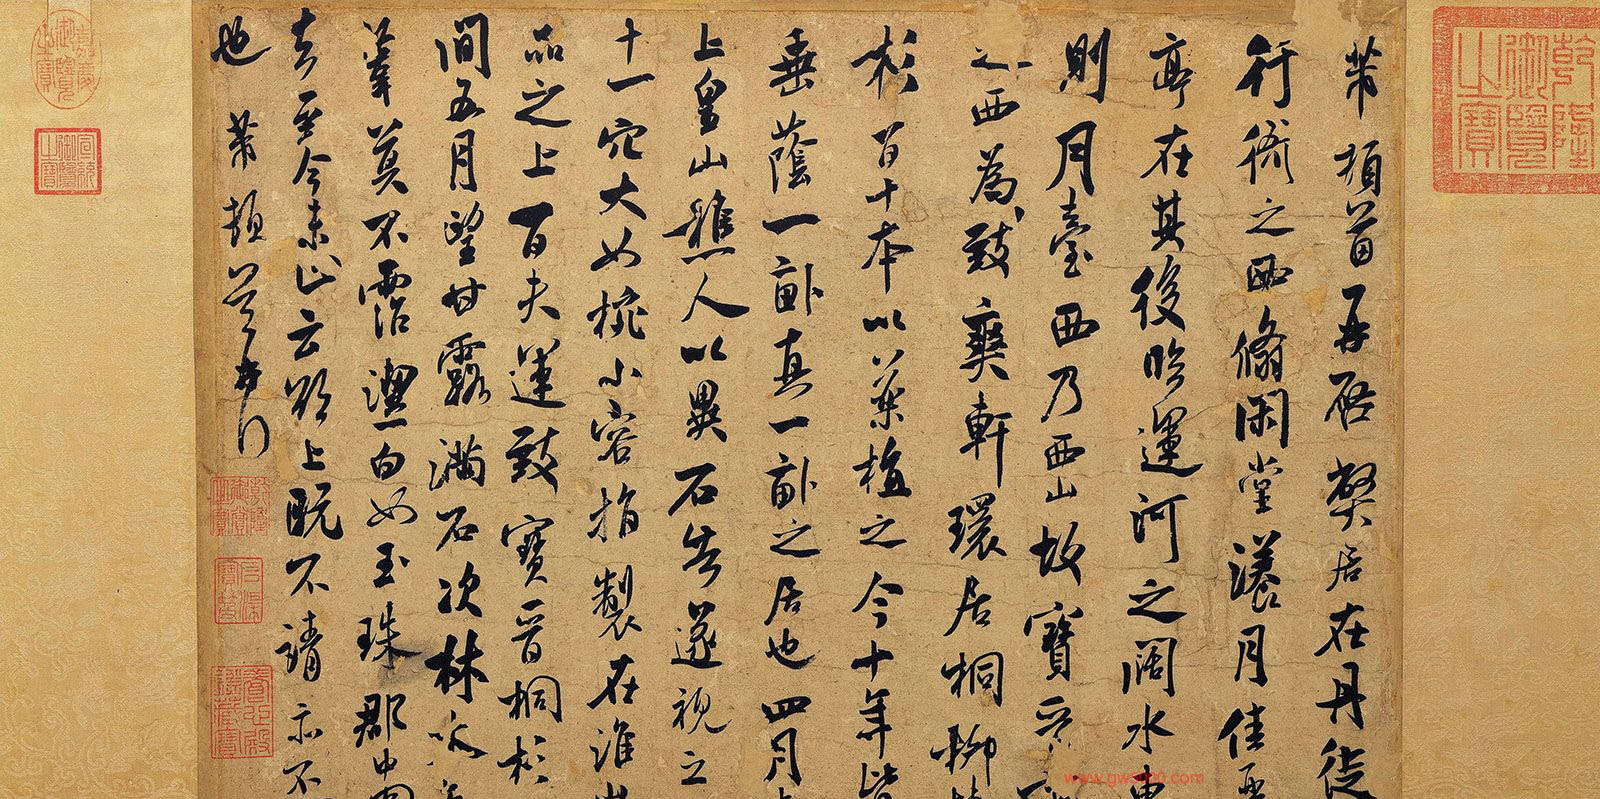 芾頓首再啓弊居在丹徒
行衙之西翛閑堂漾月佳
亭在其後臨運河之闊水
則月臺西乃西山故寶晉
之西為致爽軒環居桐柳
杉百十本以藥植之今十年皆
垂蔭一畝真一畝之居也四月
上皇山樵人以異石告遂視之
十一穴大如椀小容指製在淮
品之上百夫運致寶晉桐杉
間五月望甘露滿石次林
葦莫不霑潔白如玉珠郡中
去至今未止云欲上既不請亦不
也 芾頓首
乾隆御覽之寶
嘉慶御覽之寶
宣統御覽之寶
養心殿鑑藏寶